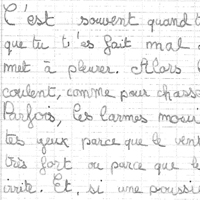 C'est souvent quand t
que tu t'es fait mal
met à pleurer. Alors
coulent, comme pour chass
Parfois, les larmes
tes yeux parce que le vent
très fort ou parce que le
irrite. Et, si une poussiè